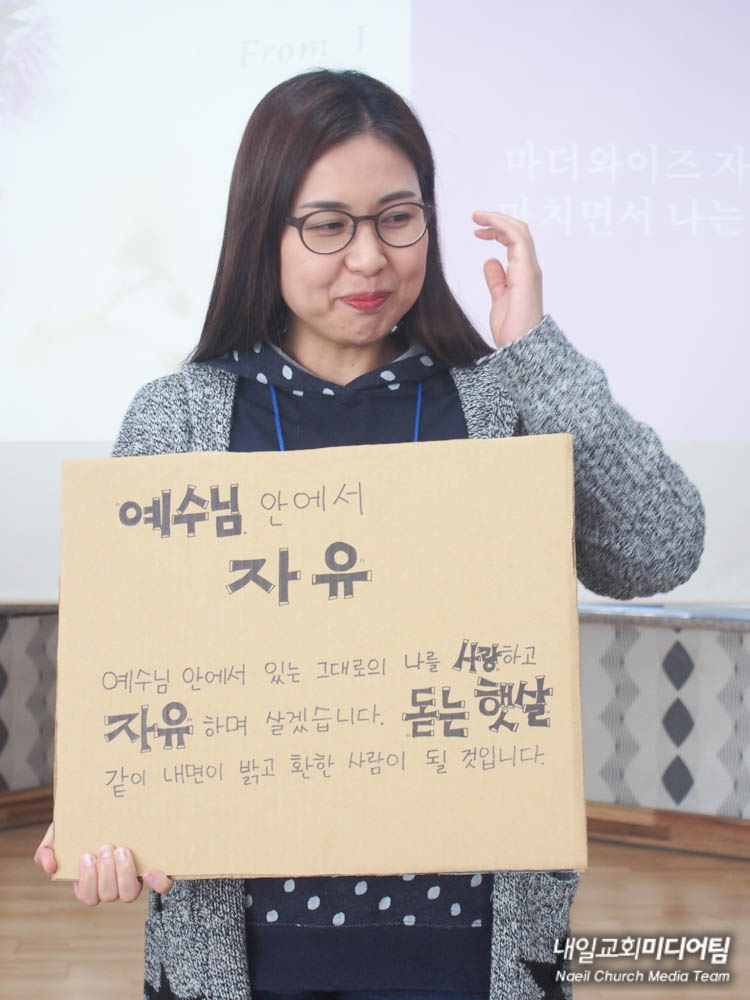 From J
마더와이즈 자
마치면서 나는
"예수님" 안에서
"자유"
예수님 안에서 있는 그대로의 나를 "사랑"하고
"자유"하며 살겠습니다. "돋는 햇살"
같이 내면이 밝고 환한 사람이 될 것입니다.
내일교회미디어팀
Naeil Church Media Team